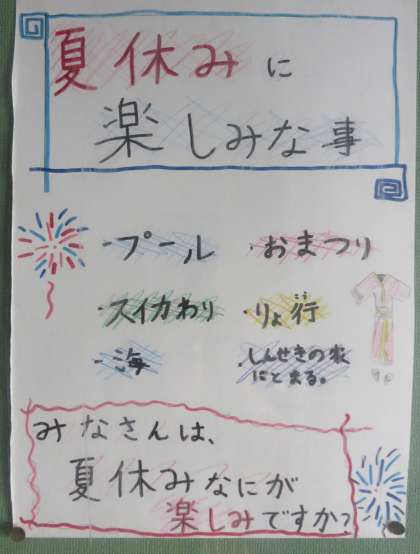 夏休みに
楽しみな事
・プール
・おまつり
・スイカわり
・りょ行
・海
・しんせきの家
にとまる。
みなさんは、
夏休みなにが
楽しみですか?